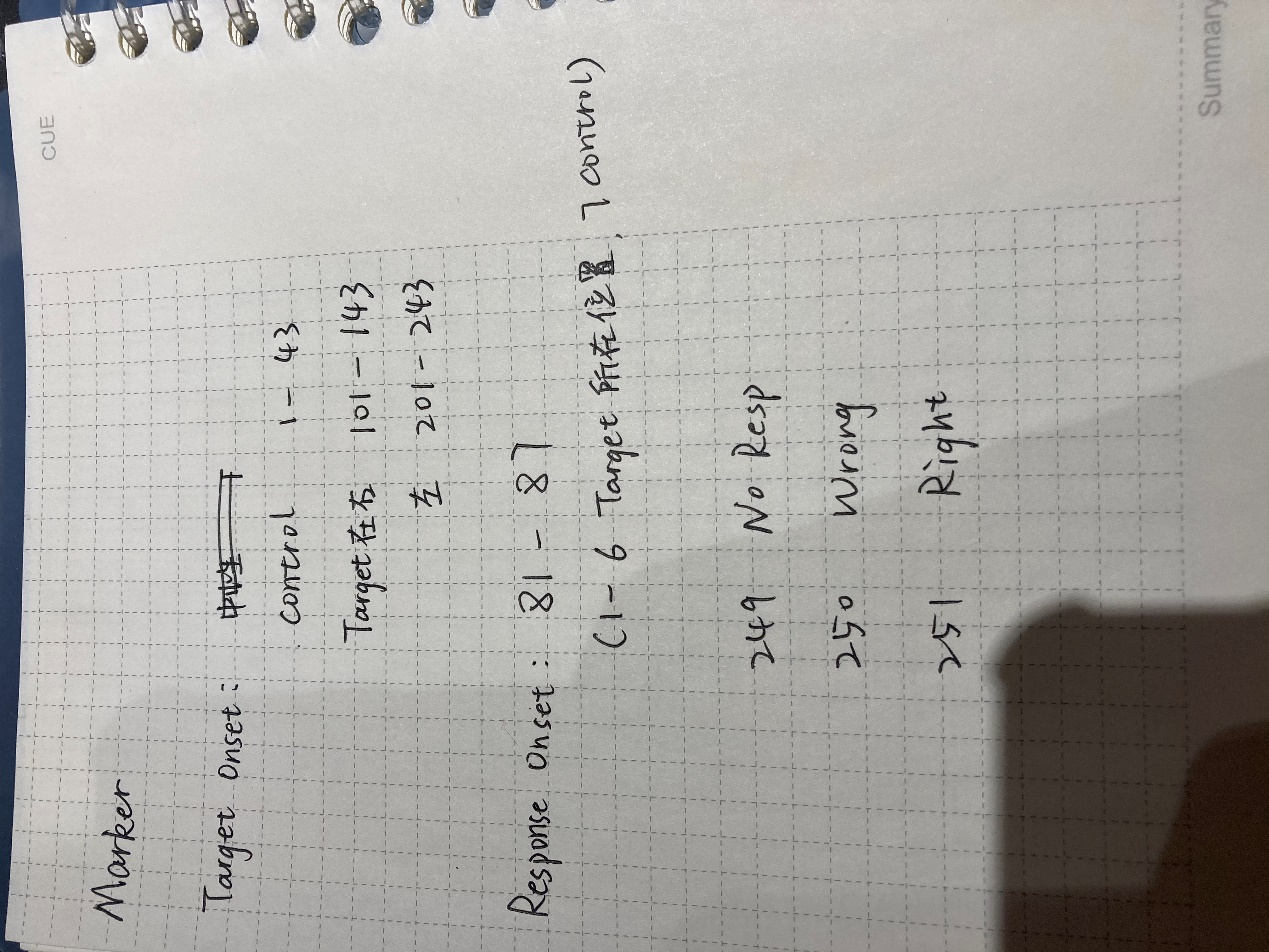 CUE
Marker
Target Onset:
control 1 - 43
Target在右 101 - 143
左 201 - 243
Response Onset: 81 - 87
(1 - 6 Target 所在位置, 7 control)
249 No Resp
250 Wrong
251 Right
Summary